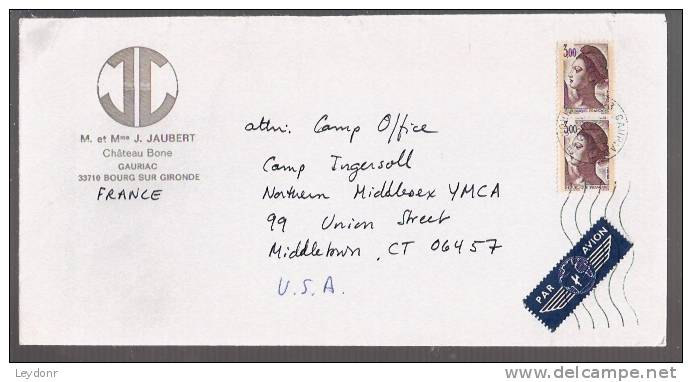 JC
M. et Mme J. JAUBERT
Château Bone
GAURIAC
33710 BOURG SUR GIRONDE
FRANCE
attn: Camp Office
Camp Ingersoll
Northern Middlesex YMCA
99 Union Street
Middletown, CT 06457
U.S.A.
3,00
3,00
PAR AVION
Leydonr
delcampe.net